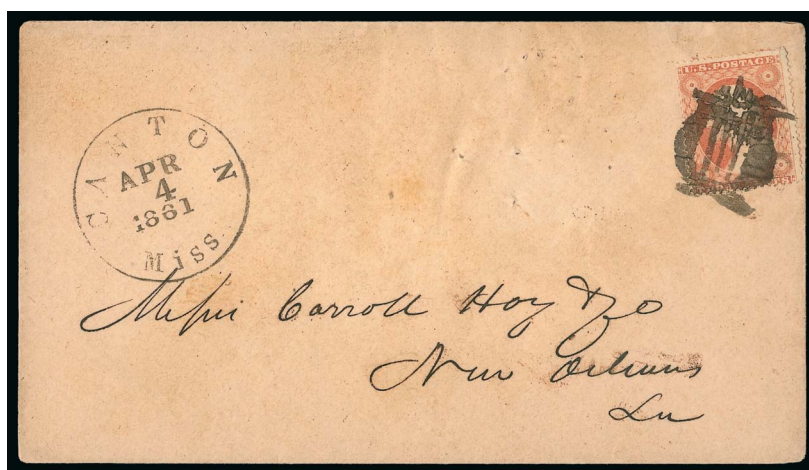 CANTON
APR
4
1861
Miss.
U.S. POSTAGE
Messrs Carroll Hoy & Co
New Orleans
La